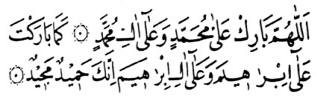 اَللّٰهُمَّ بَارِكْ عَلٰى مُحَمَّدٍ وَعَلٰٓى اٰلِ مُحَمَّدٍ ۞ كَمَا بَارَكْتَ
عَلٰٓى اِبْرٰهِيْمَ وَعَلٰٓى اٰلِ اِبْرٰهِيْمَ اِنَّكَ حَمِيْدٌ مَّجِيْدٌ ۞